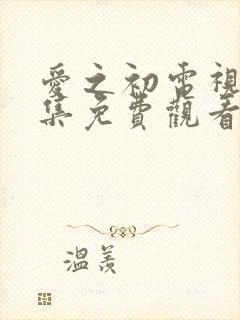 愛之初電視
集免費觀看
溫羨